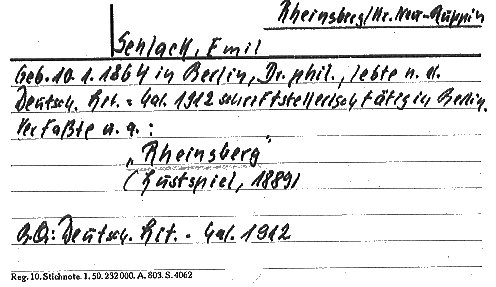 Rheinsberg/Kr. Neu-Ruppin
Schlack, Emil
Geb. 10.1.1864 in Berlin, Dr. phil., lebte n. d.
Deutsch. Lit.-Kal. 1912 schriftstellerisch tätig in Berlin.
Verfaßte u. a.:
„Rheinsberg"
(Lustspiel, 1889)
B.Q.: Deutsch. Lit.-Kal. 1912
Reg. 10. Stichnote. 1. 50. 232000. A. 803. S. 4062